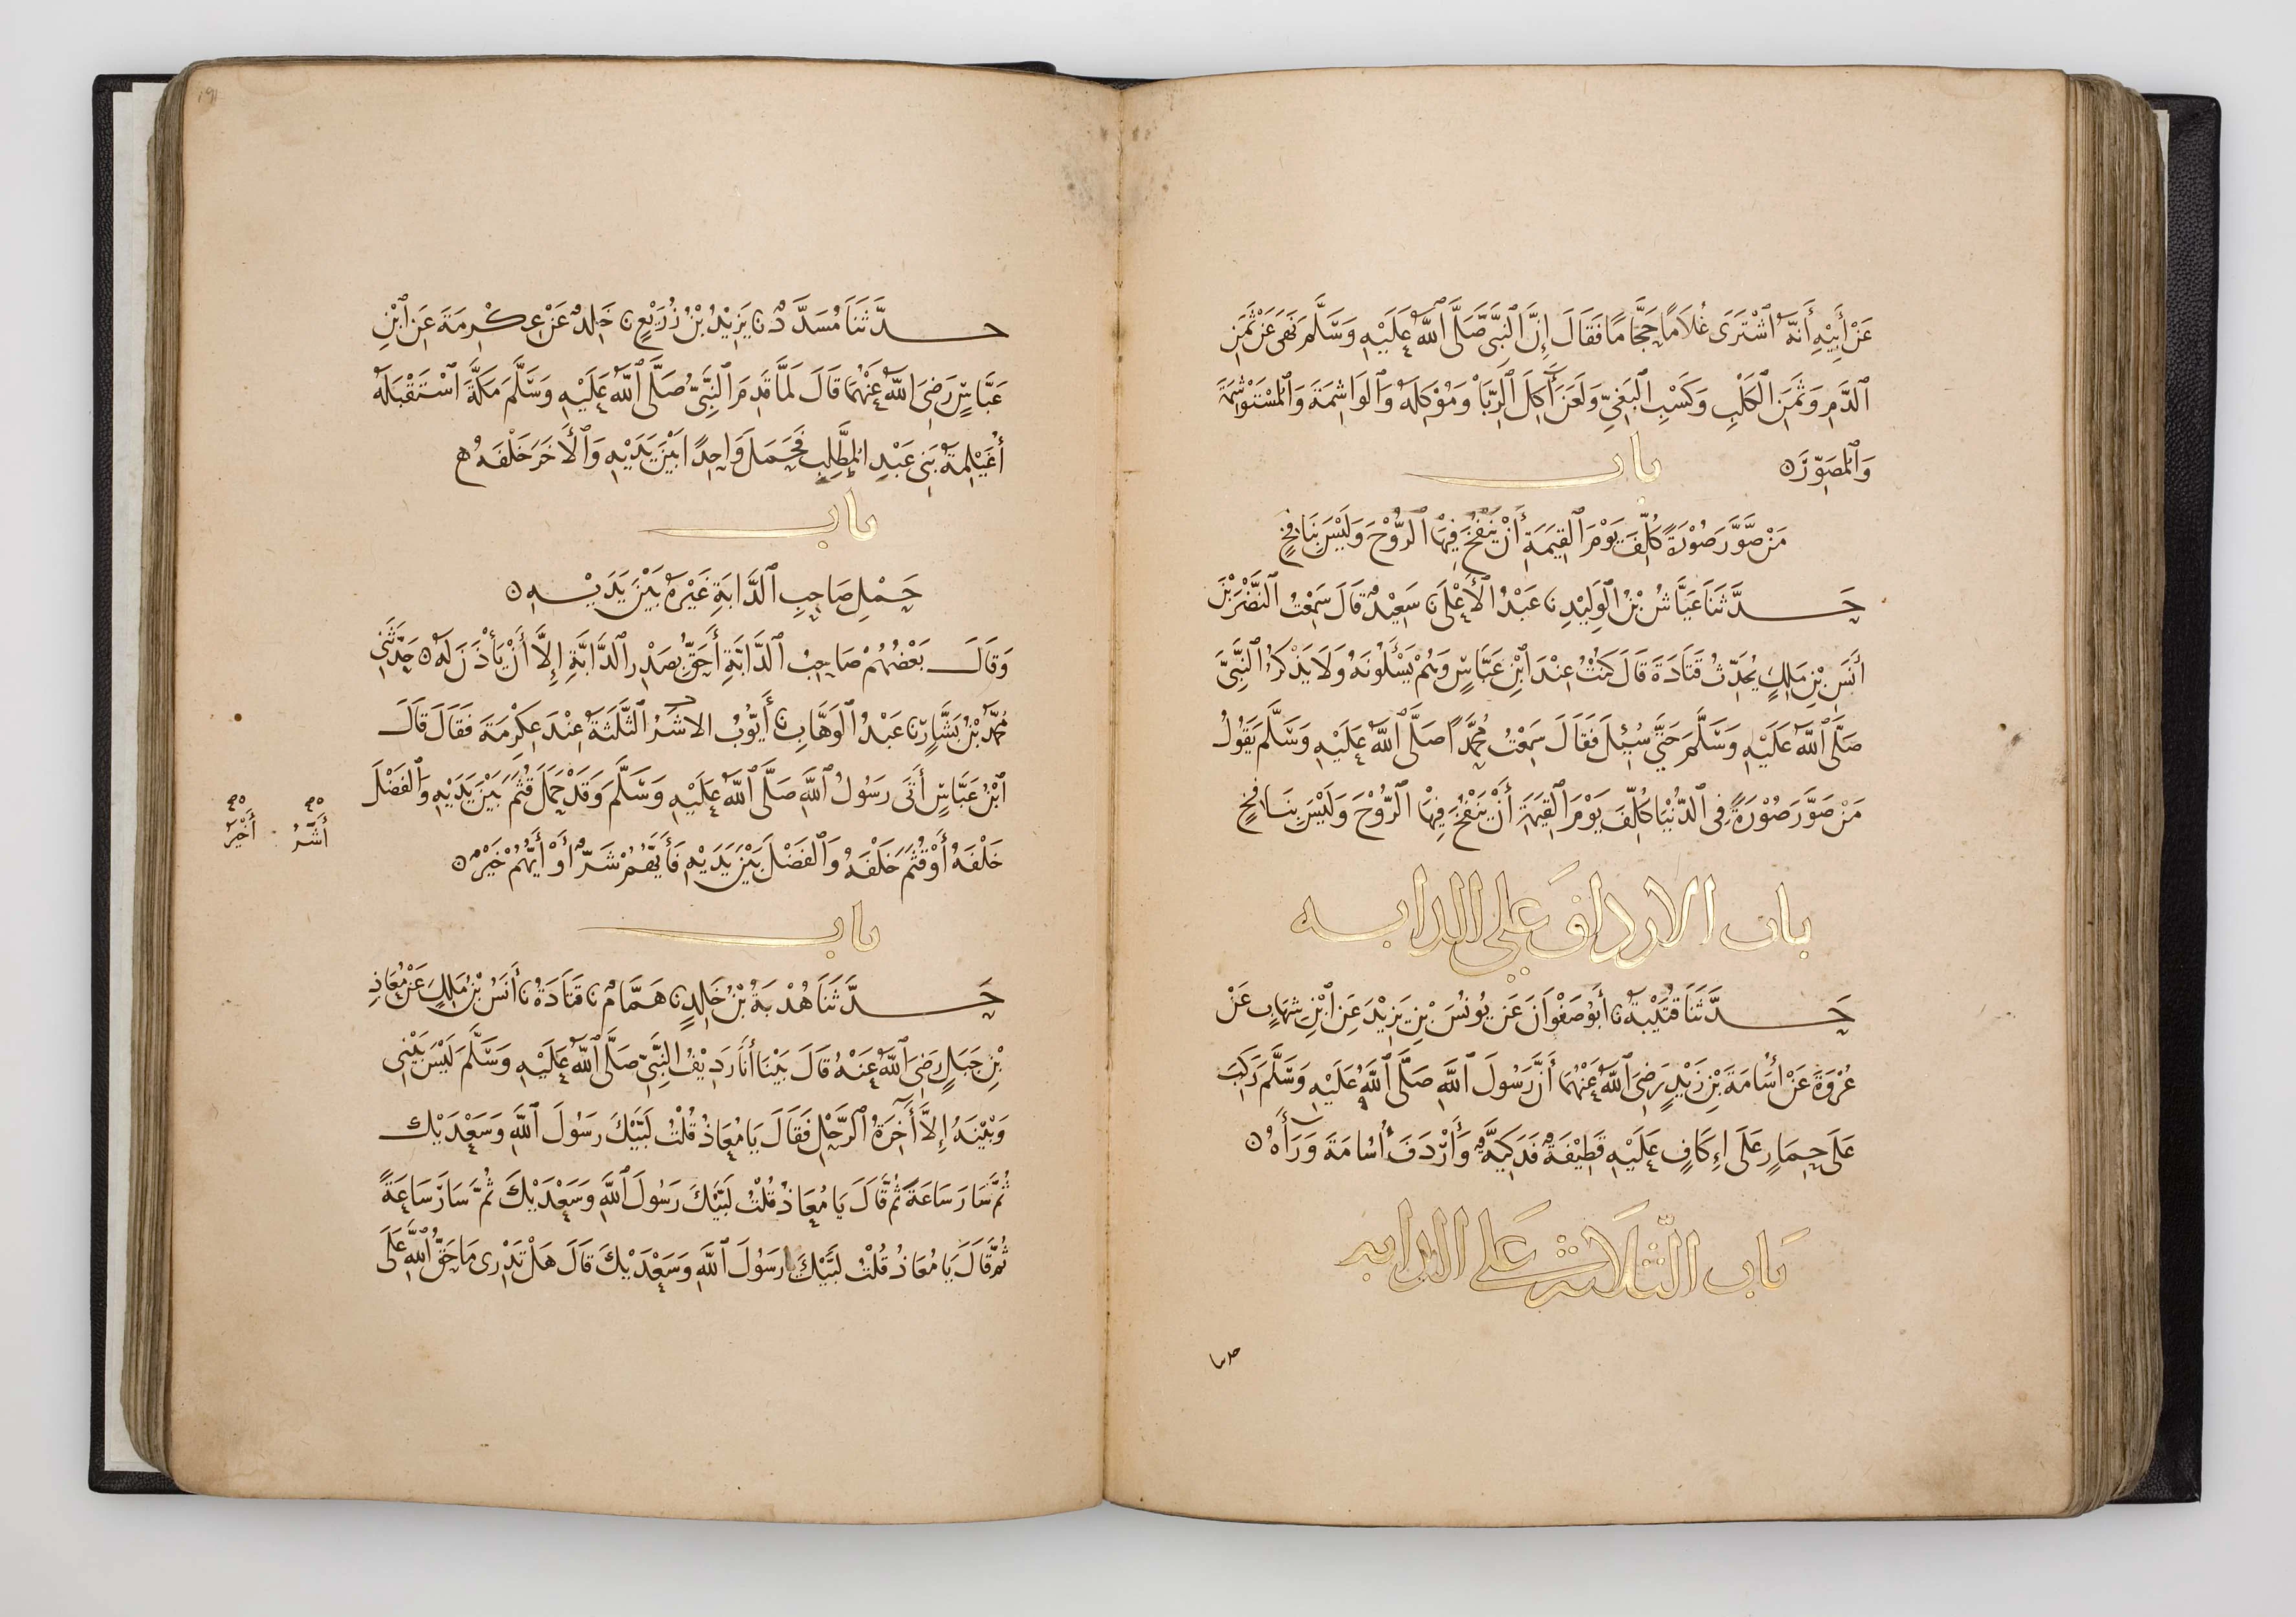 عَنْ أَبِيْهِ أَنَّهُ ٱشْتَرَى غُلَامًا حَجَّامًا فَقَالَ إِنَّ ٱلنَّبِيَّ صَلَّى ٱللَّهُ عَلَيْهِ وَسَلَّمَ نَهَى عَنْ ثَمَنِ
ٱلدَّمِ وَثَمَنِ ٱلْكَلْبِ وَكَسْبِ ٱلْبَغِيِّ وَلَعَنَ آكِلَ ٱلرِّبَا وَمُوْكِلَهُ وَٱلْوَاشِمَةَ وَٱلْمُسْتَوْشِمَةَ
وَٱلْمُصَوِّرَ ۝ باب
مَنْ صَوَّرَ صُوْرَةً كُلِّفَ يَوْمَ ٱلْقِيٰمَةِ أَنْ يَنْفُخَ فِيْهَا ٱلرُّوْحَ وَلَيْسَ بِنَافِخٍ
حَدَّثَنَا عَيَّاشُ بْنُ ٱلْوَلِيْدِ نا عَبْدُ ٱلْأَعْلَى نا سَعِيْدٌ قَالَ سَمِعْتُ ٱلنَّضْرَ بْنَ
أَنَسِ بْنِ مٰلِكٍ يُحَدِّثُ قَتَادَةَ قَالَ كُنْتُ عِنْدَ ٱبْنِ عَبَّاسٍ وَهُمْ يَسْأَلُوْنَهُ وَلَا يَذْكُرُ ٱلنَّبِيَّ
صَلَّى ٱللَّهُ عَلَيْهِ وَسَلَّمَ حَتَّى سُئِلَ فَقَالَ سَمِعْتُ مُحَمَّدًا صَلَّى ٱللَّهُ عَلَيْهِ وَسَلَّمَ يَقُوْلُ
مَنْ صَوَّرَ صُوْرَةً فِي ٱلدُّنْيَا كُلِّفَ يَوْمَ ٱلْقِيٰمَةِ أَنْ يَنْفُخَ فِيْهَا ٱلرُّوْحَ وَلَيْسَ بِنَافِخٍ
باب الارداف على الدابه
حَدَّثَنَا قُتَيْبَةُ نا أَبُو صَفْوَانَ عَنْ يُونُسَ بْنِ يَزِيْدَ عَنِ ٱبْنِ شِهَابٍ عَنْ
عُرْوَةَ عَنْ أُسَامَةَ بْنِ زَيْدٍ رَضِيَ ٱللَّهُ عَنْهُمَا أَنَّ رَسُولَ ٱللَّهِ صَلَّى ٱللَّهُ عَلَيْهِ وَسَلَّمَ رَكِبَ
عَلَى حِمَارٍ عَلَى إِكَافٍ عَلَيْهِ قَطِيْفَةٌ فَدَكِيَّةٌ وَأَرْدَفَ أُسَامَةَ وَرَآءَهُ ۝
بَاب الثَّلَاثَة عَلى الدابه
حدثنا
حَدَّثَنَا مُسَدَّدٌ نا يَزِيْدُ بْنُ زُرَيْعٍ نا خَالِدٌ عَنْ عِكْرِمَةَ عَنِ ٱبْنِ
عَبَّاسٍ رَضِيَ ٱللَّهُ عَنْهُمَا قَالَ لَمَّا قَدِمَ ٱلنَّبِيُّ صَلَّى ٱللَّهُ عَلَيْهِ وَسَلَّمَ مَكَّةَ ٱسْتَقْبَلَهُ
أُغَيْلِمَةُ بَنِي عَبْدِ الْمُطَّلِبِ فَحَمَلَ وَاحِدًا بَيْنَ يَدَيْهِ وَٱلْأَخَرَ خَلْفَهُ
باب
حَمْلِ صَاحِبِ ٱلدَّابَّةِ غَيْرَهُ بَيْنَ يَدَيْهِ ۝
وَقَالَ بَعْضُهُمْ صَاحِبُ ٱلدَّابَّةِ أَحَقُّ بِصَدْرِ ٱلدَّابَّةِ إِلَّا أَنْ يَأْذَنَ لَهُ ۝ حَدَّثَنِي
مُحَمَّدُ بْنُ بَشَّارٍ نا عَبْدُ ٱلْوَهَّابِ نا أَيُّوْبُ الاشَرُّ ٱلثَّلٰثَةُ عِنْدَ عِكْرِمَةَ فَقَالَ قَالَ
ٱبْنُ عَبَّاسٍ أَتَى رَسُوْلُ ٱللَّهِ صَلَّى ٱللَّهُ عَلَيْهِ وَسَلَّمَ وَقَدْ حَمَلَ قُثَمَ بَيْنَ يَدَيْهِ وَٱلْفَضْلَ
خَلْفَهُ أَوْ قُثَمَ خَلْفَهُ وَٱلْفَضْلَ بَيْنَ يَدَيْهِ فَأَيُّهُمْ شَرٌّ أَوْ أَيُّهُمْ خَيْرٌ ۝
أَشَرُّ أَخْيَرُ
باب
حَدَّثَنَا هُدْبَةُ بْنُ خَالِدٍ نا هَمَّامٌ نا قَتَادَةُ نا أَنَسُ بْنُ مٰلِكٍ عَنْ مُعَاذِ
بْنِ جَبَلٍ رَضِيَ ٱللَّهُ عَنْهُ قَالَ بَيْنَا أَنَا رَدِيْفُ النَّبِيِّ صَلَّى ٱللَّهُ عَلَيْهِ وَسَلَّمَ لَيْسَ بَيْنِي
وَبَيْنَهُ إِلَّا أَخِرَةُ ٱلرَّحْلِ فَقَالَ يَا مُعَاذُ قُلْتُ لَبَّيْكَ رَسُولَ ٱللَّهِ وَسَعْدَيْكَ
ثُمَّ سَارَ سَاعَةً ثُمَّ قَالَ يَا مُعَاذُ قُلْتُ لَبَّيْكَ رَسُولَ ٱللَّهِ وَسَعْدَيْكَ ثُمَّ سَارَ سَاعَةً
ثُمَّ قَالَ يَا مُعَاذُ قُلْتُ لَبَّيْكَ رَسُوْلَ ٱللَّهِ وَسَعْدَيْكَ قَالَ هَلْ تَدْرِى مَا حَقُّ ٱللَّهِ عَلَى